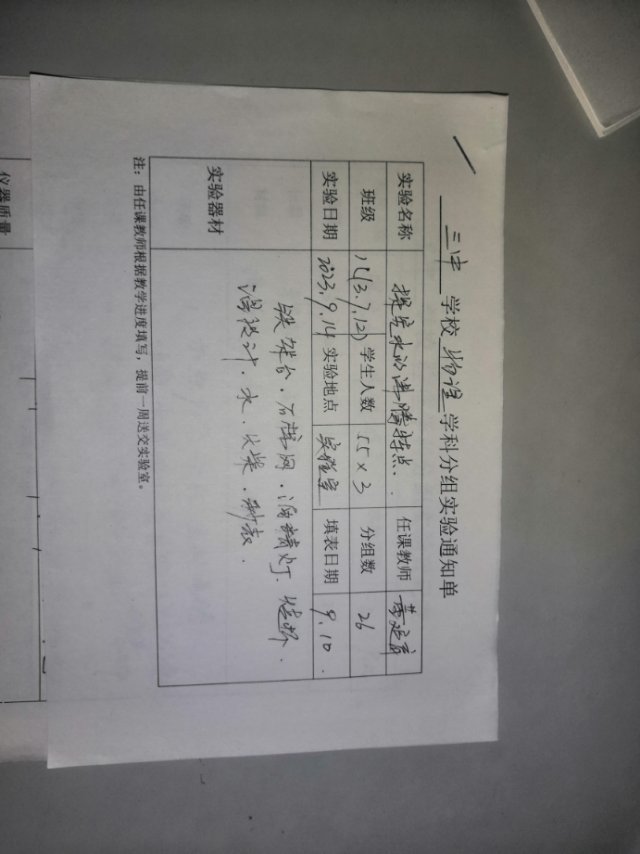 三中 学校 物理 学科分组实验通知单
实验名称 探究水的沸腾特点. 任课教师
班级 八(3.7.12) 学生人数 55×3 分组数 26
实验日期 2023.9.14 实验地点 实验室 填表日期 9.10.
实验器材 铁架台.石棉网.酒精灯.烧杯.
温度计.水.火柴.秒表.
注：由任课教师根据教学进度填写，提前一周送交实验室。
仪器质量